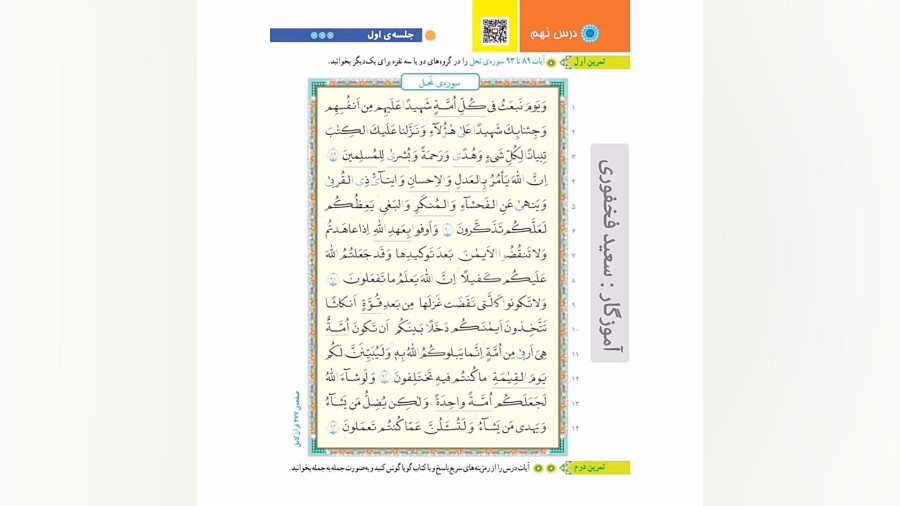 درس نهم
جلسه‌ی اول
تمرین اول
آیات ۸۹ تا ۹۳ سوره‌ی نحل را در گروه‌های دو یا سه نفره برای یک‌دیگر بخوانید.
سوره‌ی نَحل
۱ وَ يَومَ نَبعَثُ فى كُلِّ اُمَّةٍ شَهيدًا عَلَيهِم مِن اَنفُسِهِم
۲ وَ جِئنا بِكَ شَهيدًا عَلىٰ هٰؤُلآءِ وَ نَزَّلنا عَلَيكَ الكِتٰبَ
۳ تِبيانًا لِكُلِّ شَىءٍ وَ هُدًى وَ رَحمَةً وَ بُشرىٰ لِلمُسلِمينَ ۸۹
۴ اِنَّ اللهَ يَأمُرُ بِالعَدلِ وَ الاِحسانِ وَ ايتآئِ ذِى القُربىٰ
۵ وَ يَنهىٰ عَنِ الفَحشآءِ وَ المُنكَرِ وَ البَغىِ يَعِظُكُم
۶ لَعَلَّكُم تَذَكَّرونَ ۹۰ وَ اَوفوا بِعَهدِ اللهِ اِذا عاهَدتُم
۷ وَ لا تَنقُضُوا الاَيمٰنَ بَعدَ تَوكيدِها وَ قَد جَعَلتُمُ اللهَ
۸ عَلَيكُم كَفيلًا اِنَّ اللهَ يَعلَمُ ما تَفعَلونَ ۹۱
۹ وَ لا تَكونوا كَالَّتى نَقَضَت غَزلَها مِن بَعدِ قُوَّةٍ اَنكاثًا
۱۰ تَتَّخِذونَ اَيمٰنَكُم دَخَلًا بَينَكُم اَن تَكونَ اُمَّةٌ
۱۱ هِىَ اَربىٰ مِن اُمَّةٍ اِنَّما يَبلوكُمُ اللهُ بِهٖ وَ لَيُبَيِّنَنَّ لَكُم
۱۲ يَومَ القِيٰمَةِ ما كُنتُم فيهِ تَختَلِفونَ ۹۲ وَ لَو شآءَ اللهُ
۱۳ لَجَعَلَكُم اُمَّةً واحِدَةً وَ لٰكِن يُضِلُّ مَن يَشآءُ
۱۴ وَ يَهدى مَن يَشآءُ وَ لَتُسئَلُنَّ عَمّا كُنتُم تَعمَلونَ ۹۳
صفحه‌ی ۲۷۷ قرآن کامل
آموزگار : سعید فخفوری
تمرین دوم
آیات درس را از رمزینه‌های سریع پاسخ و یا کتاب گویا گوش کنید و به‌صورت جمله به جمله بخوانید.